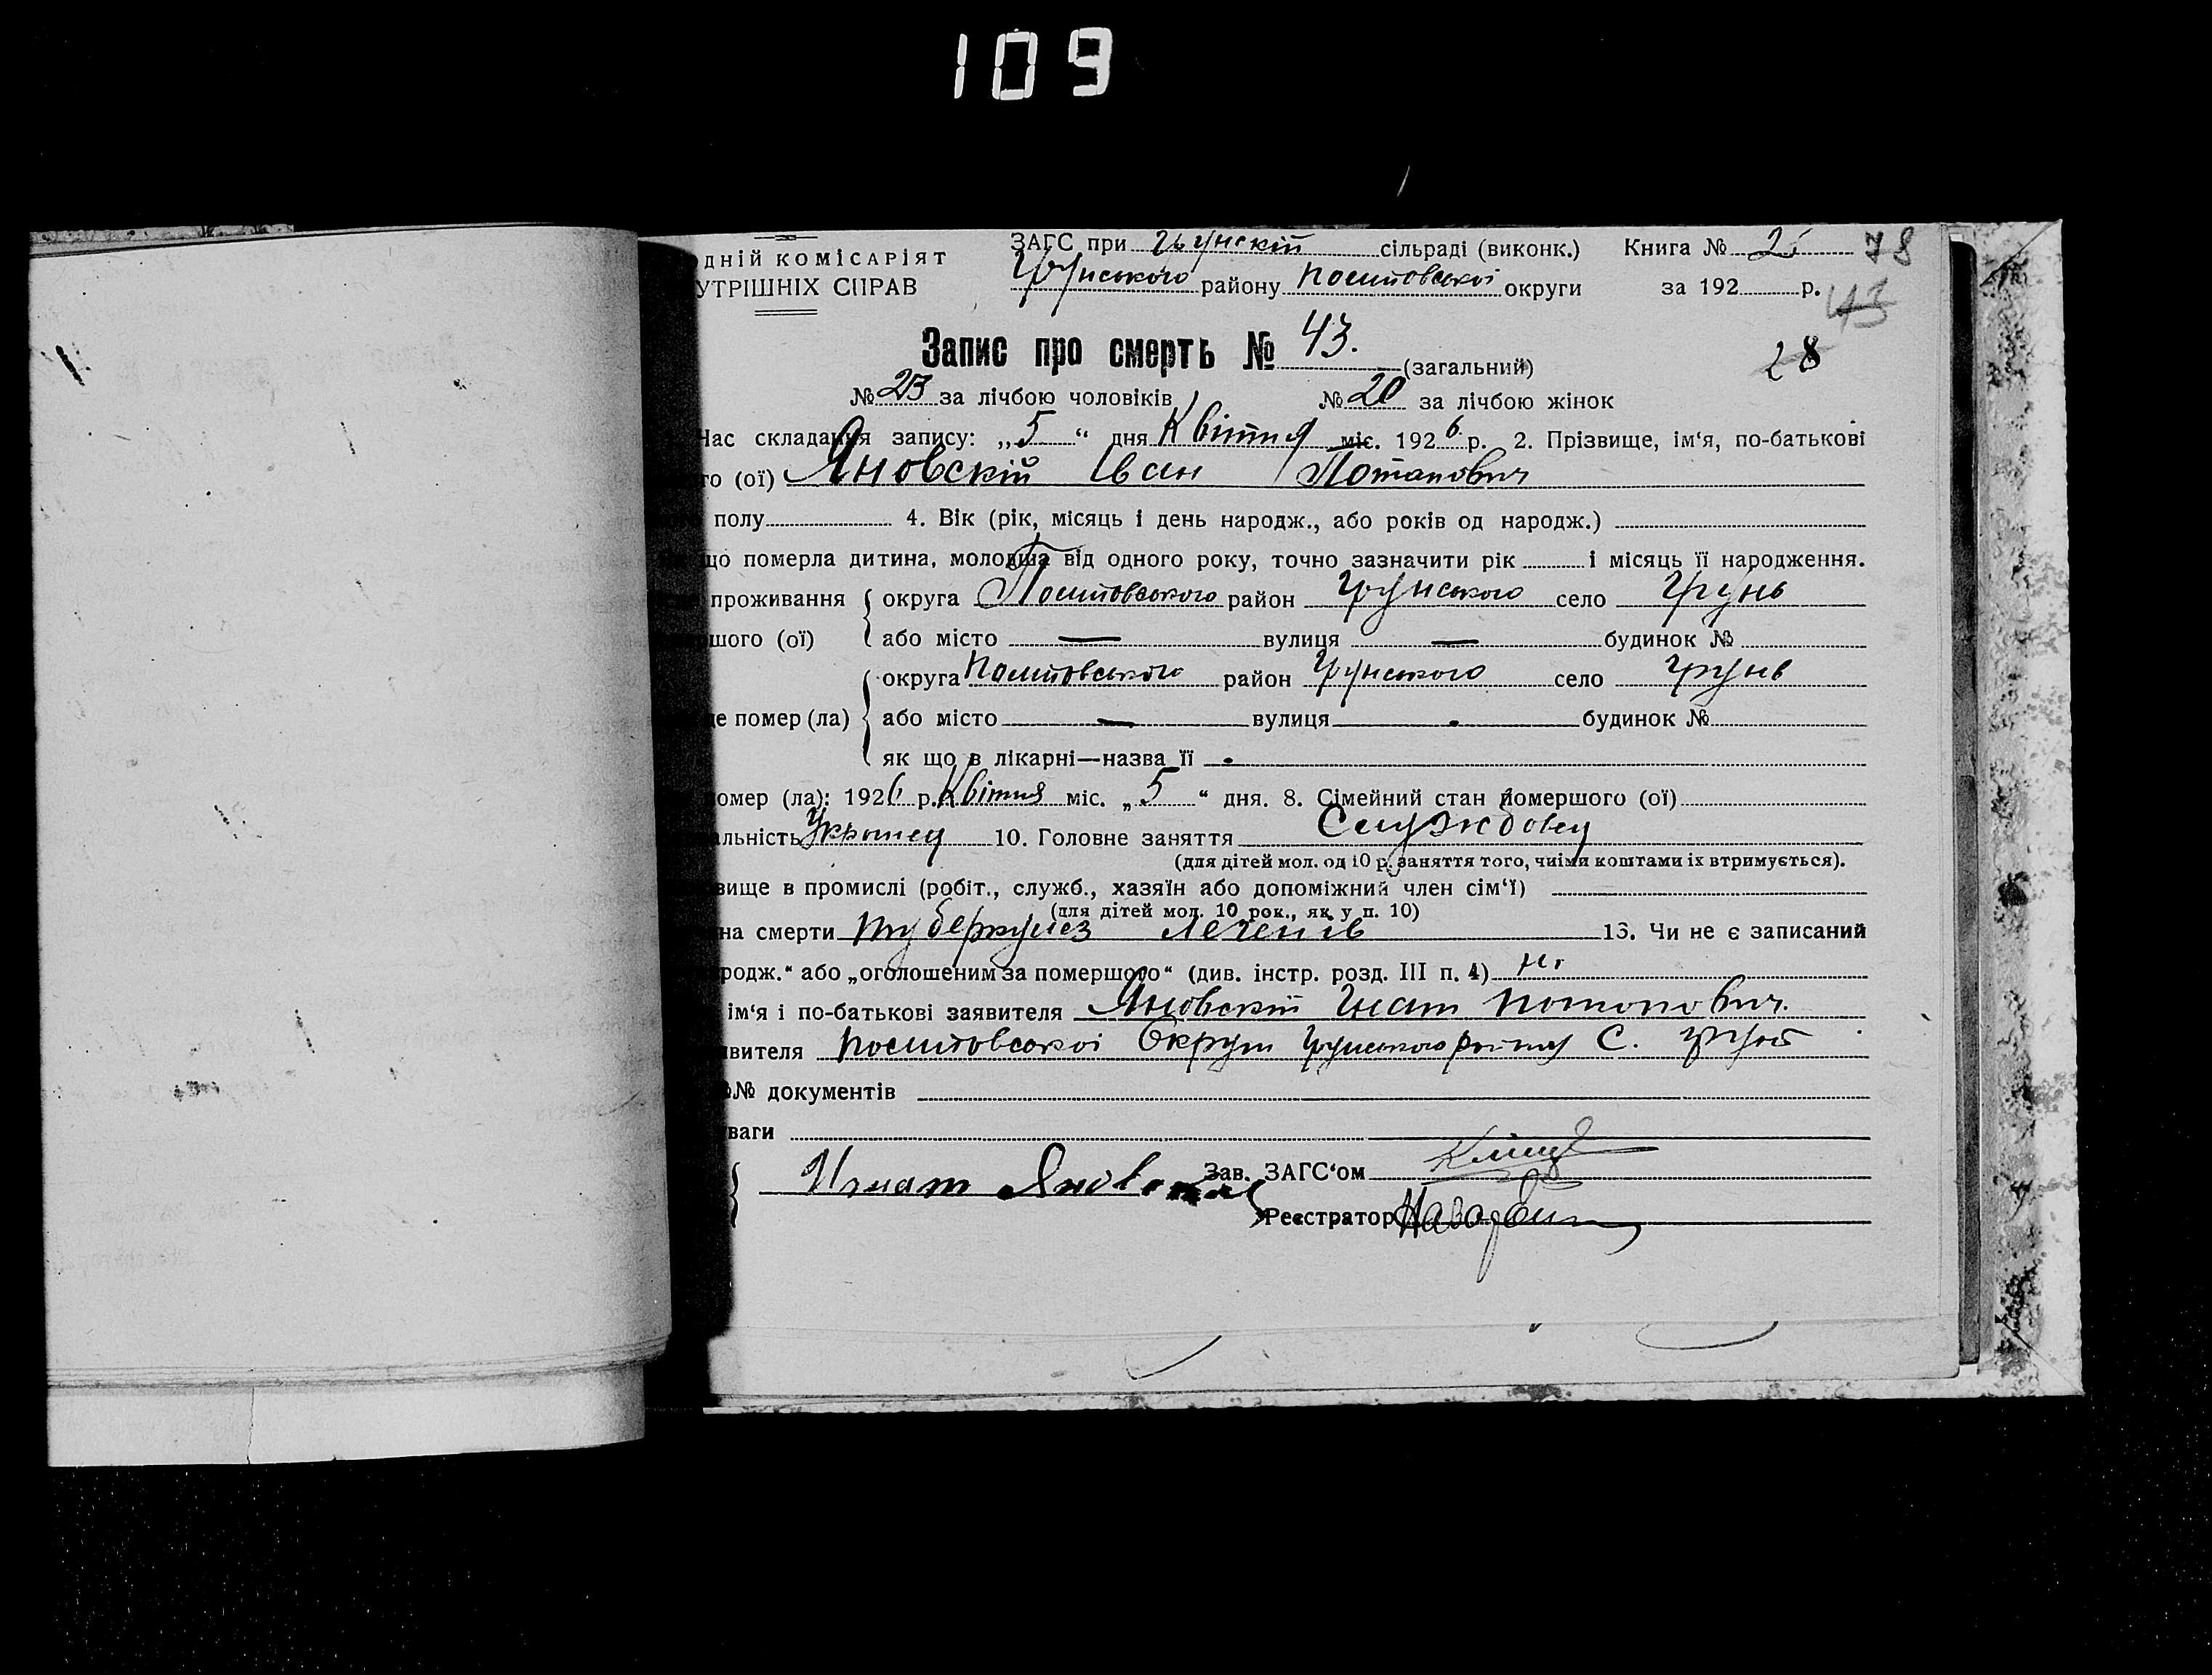 109
ОДНІЙ КОМІСАРІЯТ
УТРІШНІХ СПРАВ
ЗАГС при Грунскій сільраді (виконк.) Книга № 78
Грунського району округи за 192 р.
43
Запис про смерть № 43. (загальний)
28
№ 23 за лічбою чоловіків № 20 за лічбою жінок
Час складання запису: „5“ дня Квітня міс. 1926 р. 2. Прізвище, ім‘я, по-батькові
го (ої) Яновскій Іван Потапович
полу 4. Вік (рік, місяць і день народж., або років од народж.)
що померла дитина, молодша від одного року, точно зазначити рік і місяць її народження.
проживання округа район Грунського село Грунь
шого (ої) або місто — вулиця — будинок №
округа район Грунського село Грунь
де помер (ла) або місто — вулиця будинок №
як що в лікарні—назва її
омер (ла): 1926 р. Квітня міс. „5“ дня. 8. Сімейний стан помершого (ої)
альність 10. Головне заняття Службовец
(для дітей мол. од 10 р. заняття того, чиїми коштами їх втримується).
вище в промислі (робіт., служб., хазяїн або допоміжний член сім‘ї)
(для дітей мол. 10 рок., як у п. 10)
на смерти туберкулез легенів 13. Чи не є записаний
родж.“ або „оголошеним за помершого“ (див. інстр. розд. III п. 4)
ім‘я і по-батькові заявителя Яновскій Гнат Потопович.
явителя Округи Грунського району С. Грунь
№№ документів
ваги
Игнат Яновский Зав. ЗАГС‘ом
Реєстратор